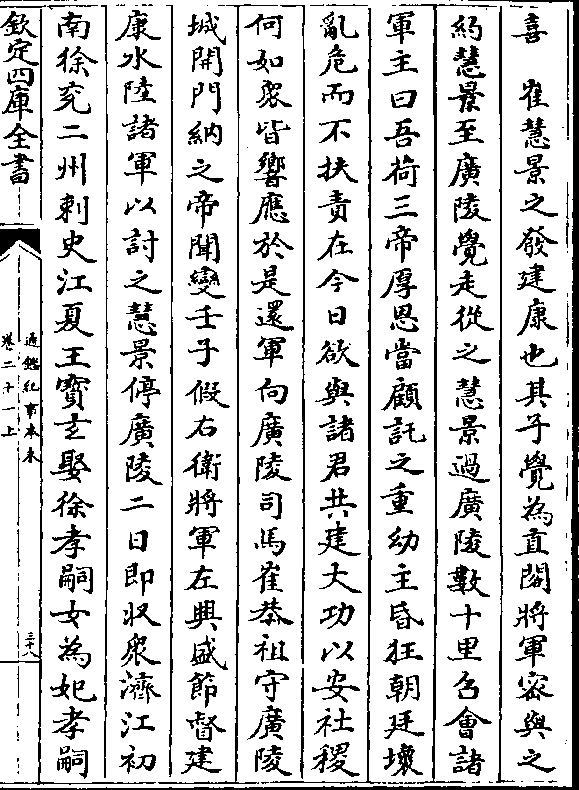 喜　崔慧景之發建康也其子覺為直閤將軍宻與之
約慧景至廣陵覺走從之慧景過廣陵數十里召會諸
軍主曰吾荷三帝厚恩當顧託之重幼主昏狂朝廷壞
亂危而不扶責在今日欲與諸君共建大功以安社稷
何如衆皆響應於是還軍向廣陵司馬崔恭祖守廣陵
城開門納之帝聞變壬子假右衛將軍左興盛節督建
康水陸諸軍以討之慧景停廣陵二日即收衆濟江初
南徐兖二州刺史江夏王寳玄娶徐孝嗣女為妃孝嗣
欽定四庫全書
通鑑紀事本末
卷二十一上
三十八